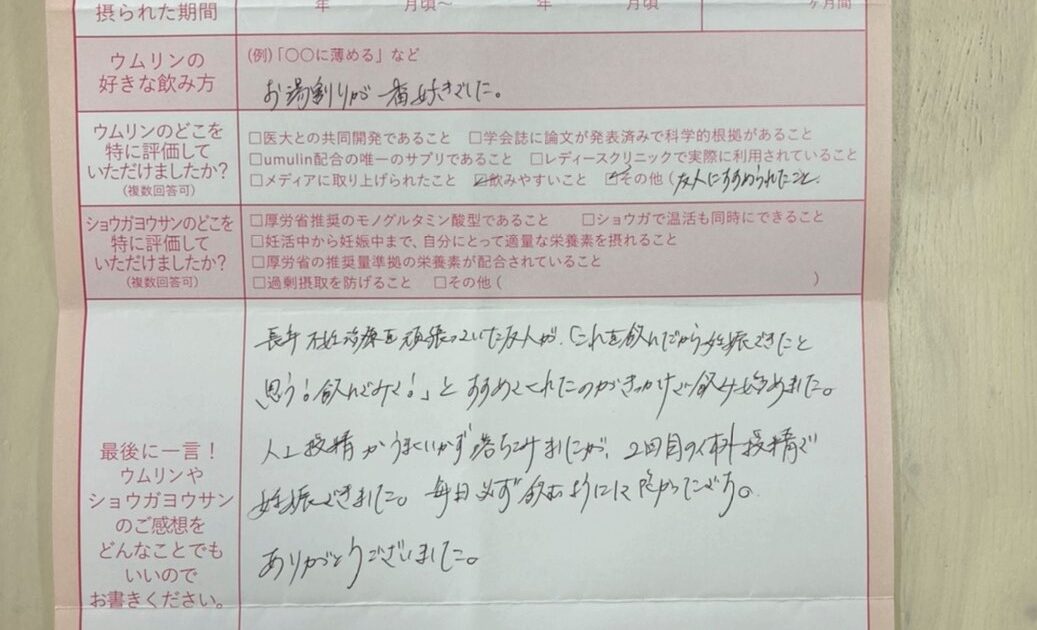 摂られた期間
年 月頃〜 年 月頃 ヶ月間
ウムリンの
好きな飲み方
(例)「〇〇に薄める」など
お湯割りが一番好きでした。
ウムリンのどこを
特に評価して
いただけましたか?
(複数回答可)
□医大との共同開発であること □学会誌に論文が発表済みで科学的根拠があること
□umulin配合の唯一のサプリであること □レディースクリニックで実際に利用されていること
□メディアに取り上げられたこと ☑飲みやすいこと ☑その他(友人にすすめられたこと。
ショウガヨウサンのどこを
特に評価して
いただけましたか?
(複数回答可)
□厚労省推奨のモノグルタミン酸型であること □ショウガで温活も同時にできること
□妊活中から妊娠中まで、自分にとって適量な栄養素を摂れること
□厚労省の推奨量準拠の栄養素が配合されていること
□過剰摂取を防げること □その他( )
最後に一言!
ウムリンや
ショウガヨウサン
のご感想を
どんなことでも
いいので
お書きください。
長年不妊治療を頑張っていた友人が、「これを飲んだから妊娠できたと
思う!飲んでみて!」とすすめてくれたのがきっかけで飲み始めました。
人工授精がうまくいかず落ちこみましたが、2回目の体外授精で
妊娠できました。毎日必ず飲むようにして良かったです。
ありがとうございました。